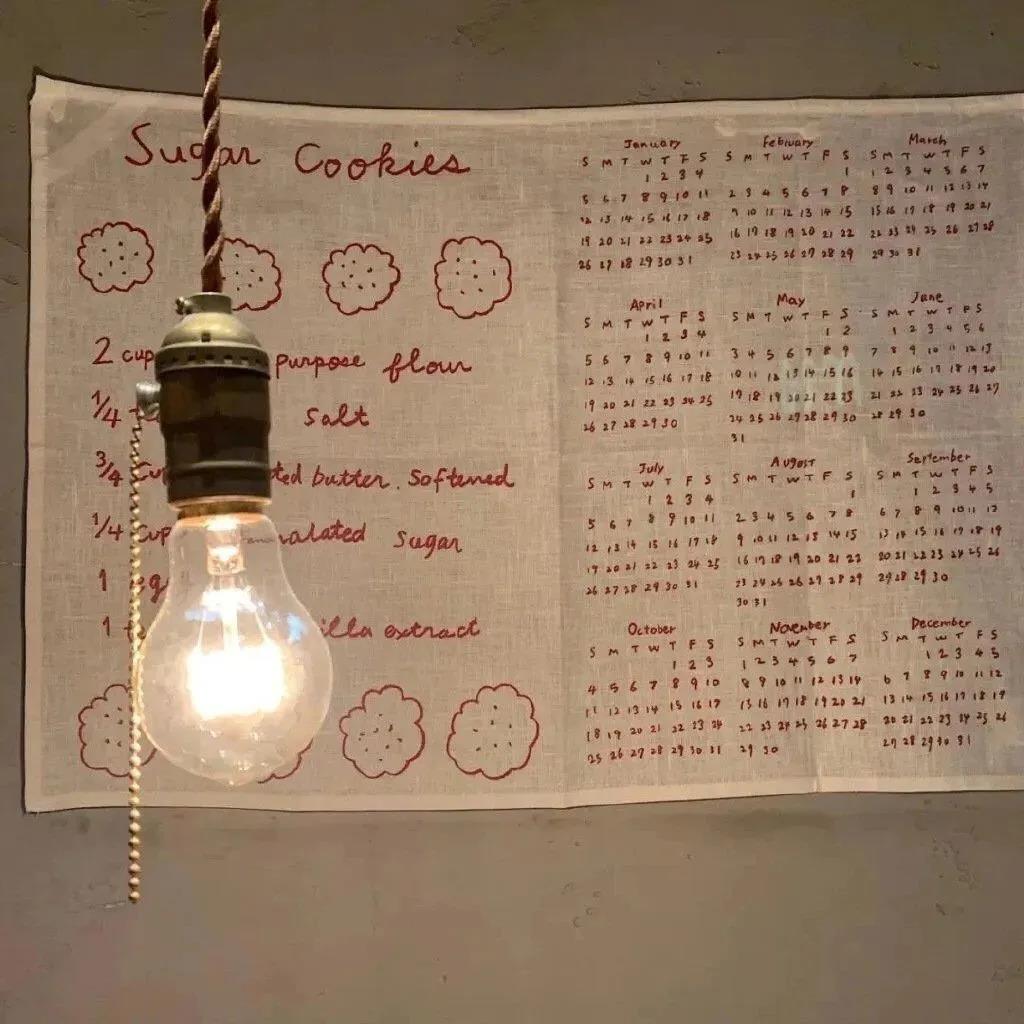 Sugar Cookies
2 cup purpose flour
1/4 salt
3/4 butter. Softened
1/4 cup sugar
1
1 extract
January
S M T W T F S
1 2 3 4
5 6 7 8 9 10 11
12 13 14 15 16 17 18
19 20 21 22 23 24 25
26 27 28 29 30 31
February
S M T W T F S
1
2 3 4 5 6 7 8
9 10 11 12 13 14 15
16 17 18 19 20 21 22
23 24 25 26 27 28 29
March
S M T W T F S
1 2 3 4 5 6 7
8 9 10 11 12 13 14
15 16 17 18 19 20 21
22 23 24 25 26 27 28
29 30 31
April
S M T W T F S
1 2 3 4
5 6 7 8 9 10 11
12 13 14 15 16 17 18
19 20 21 22 23 24 25
26 27 28 29 30
May
S M T W T F S
1 2
3 4 5 6 7 8 9
10 11 12 13 14 15 16
17 18 19 20 21 22 23
24 25 26 27 28 29 30
31
June
S M T W T F S
1 2 3 4 5 6
7 8 9 10 11 12 13
14 15 16 17 18 19 20
21 22 23 24 25 26 27
28 29 30
July
S M T W T F S
1 2 3 4
5 6 7 8 9 10 11
12 13 14 15 16 17 18
19 20 21 22 23 24 25
26 27 28 29 30 31
August
S M T W T F S
1
2 3 4 5 6 7 8
9 10 11 12 13 14 15
16 17 18 19 20 21 22
23 24 25 26 27 28 29
30 31
September
S M T W T F S
1 2 3 4 5
6 7 8 9 10 11 12
13 14 15 16 17 18 19
20 21 22 23 24 25 26
27 28 29 30
October
S M T W T F S
1 2 3
4 5 6 7 8 9 10
11 12 13 14 15 16 17
18 19 20 21 22 23 24
25 26 27 28 29 30 31
November
S M T W T F S
1 2 3 4 5 6 7
8 9 10 11 12 13 14
15 16 17 18 19 20 21
22 23 24 25 26 27 28
29 30
December
S M T W T F S
1 2 3 4 5
6 7 8 9 10 11 12
13 14 15 16 17 18 19
20 21 22 23 24 25 26
27 28 29 30 31